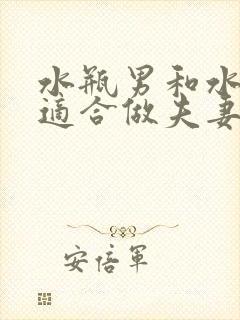 水瓶男和水
適合做夫妻
安倍軍